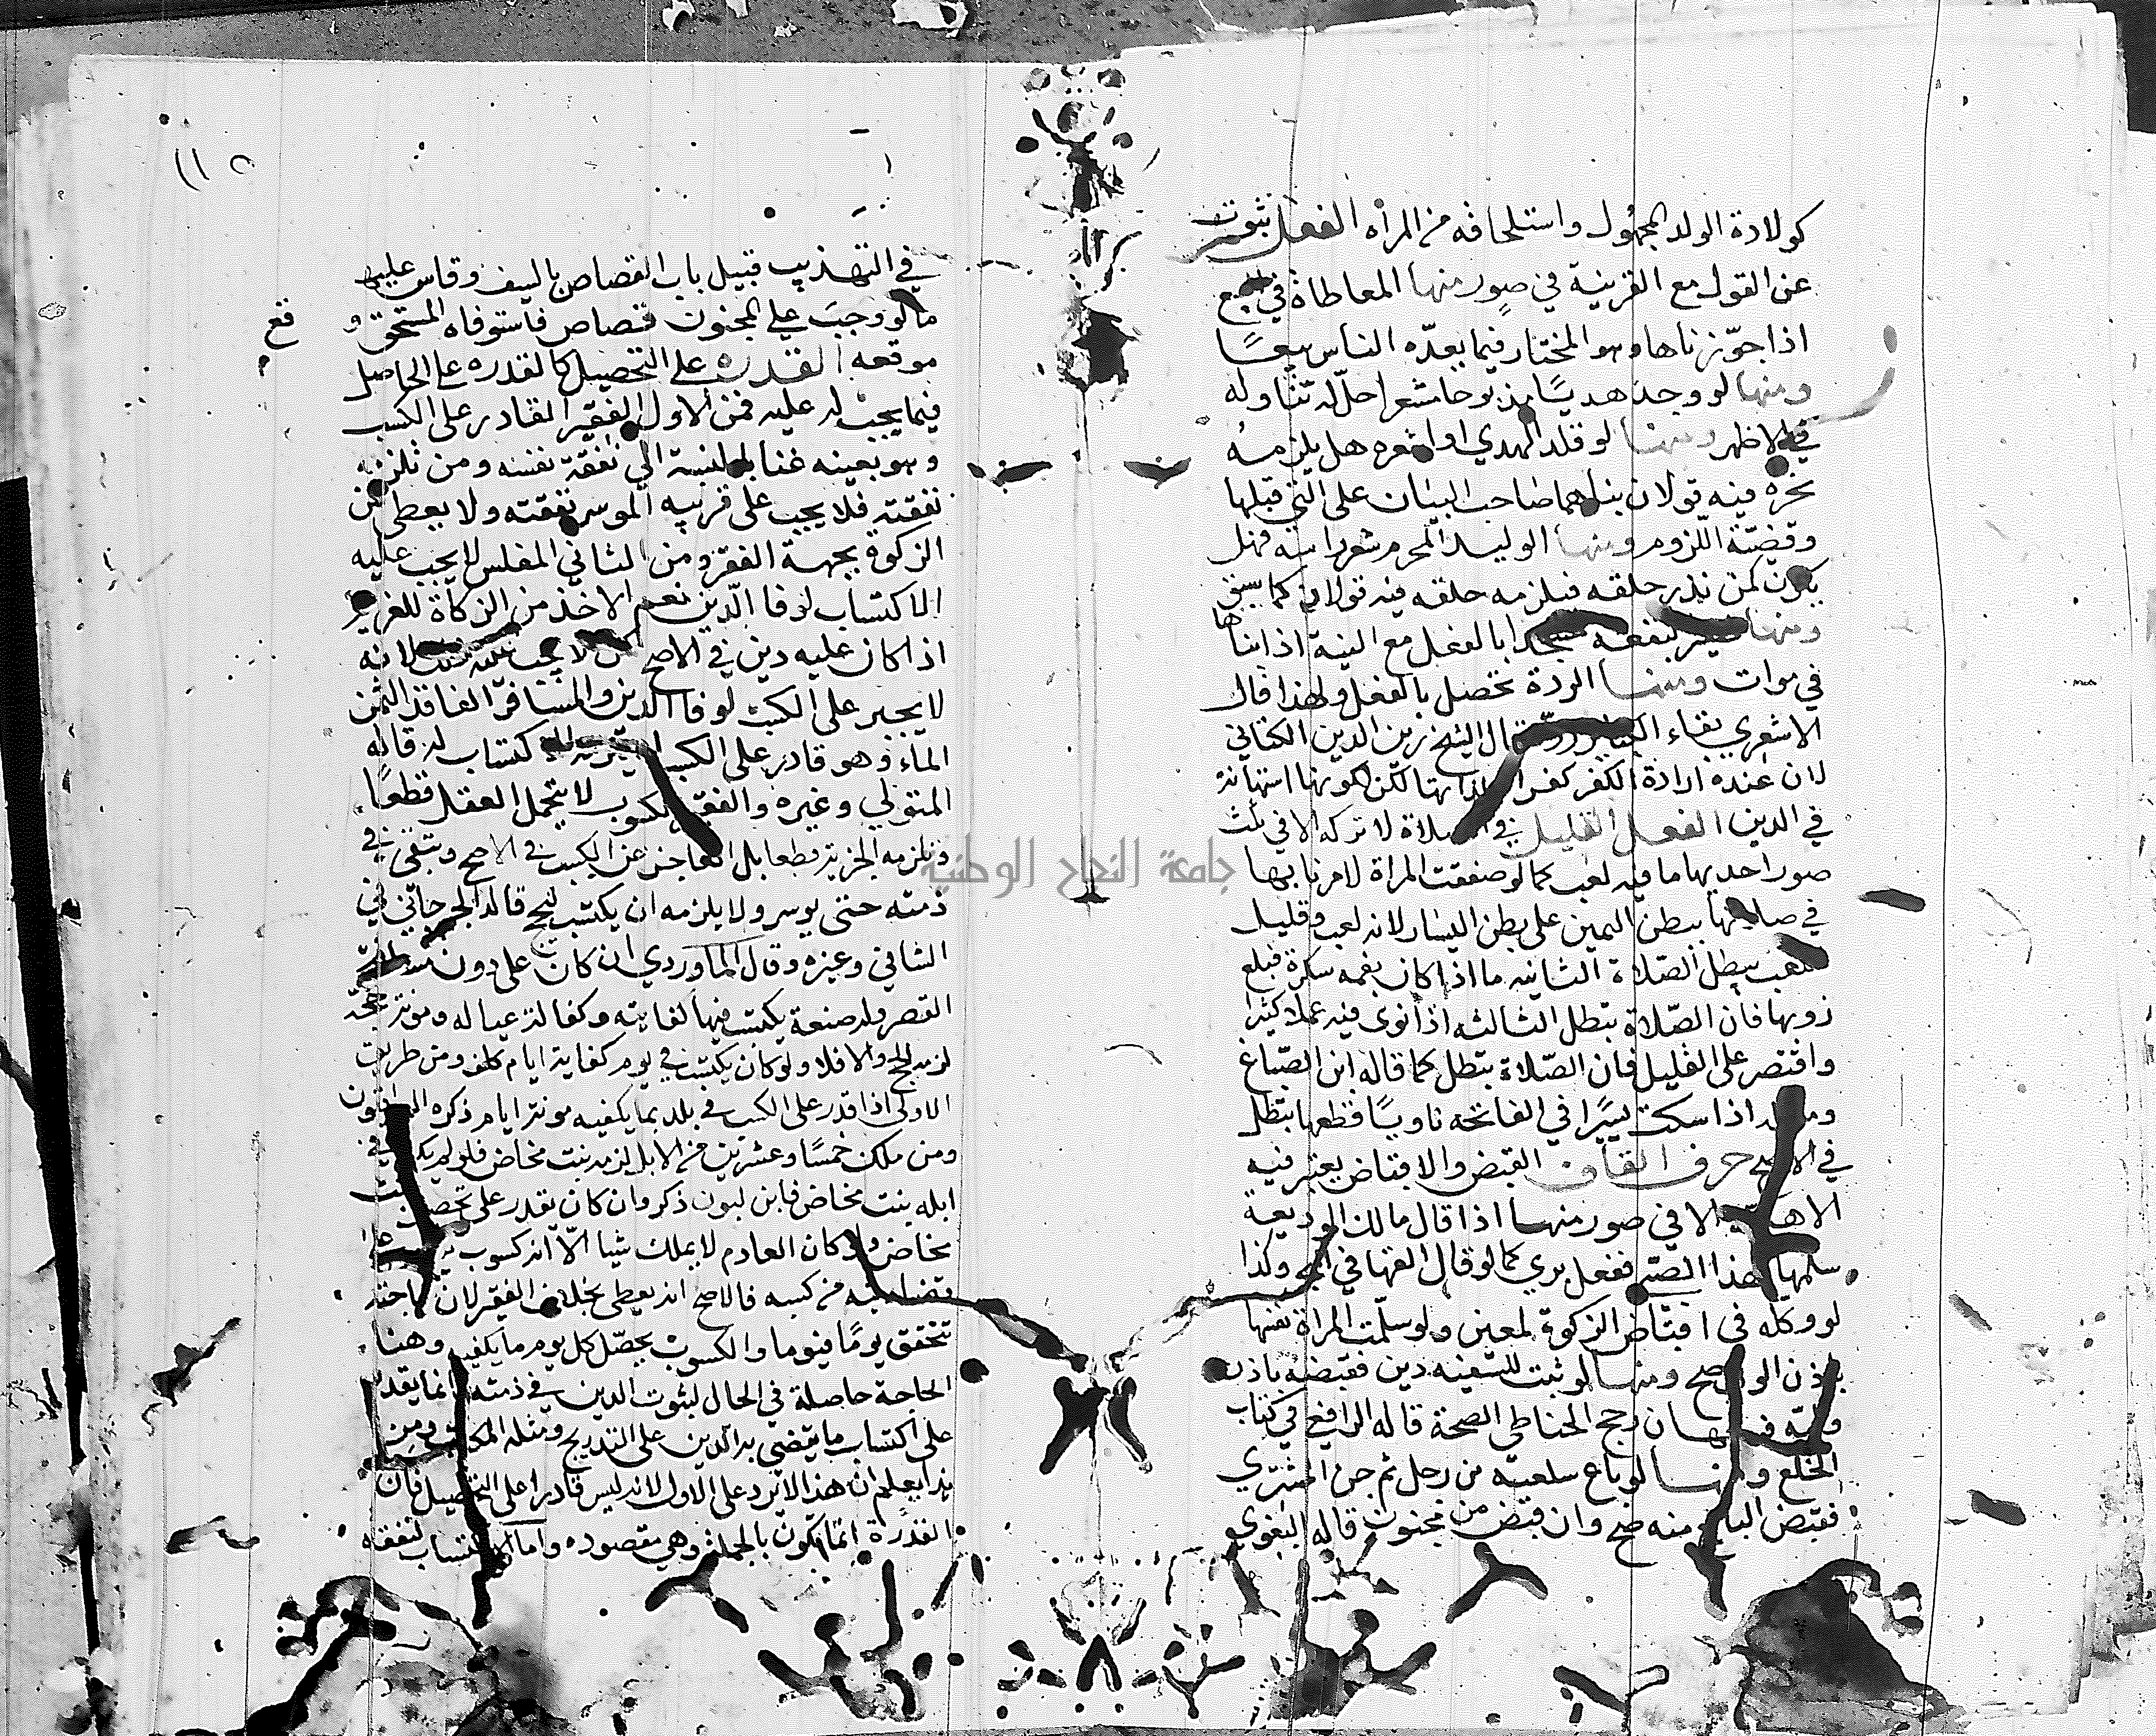 كولادة الولد المجهول واستلحاقه من المرأه الفعل ينوب
عن القول مع القرينة في صور منها المعاطاة في البيع
اذا جوزناها وهو المختار فيما يعدّه الناس بيعًا
ومنها لو وجد هديًا مذبوحا مشعرا حل له تناوله
في الاظهر ومنها لو قلد الهدي او اشعره هل يلزمه
نحره فيه قولان بناهما صاحب البيان على التي قبلها
وقضيّة اللّزوم ومنها لو لبد المحرم شعر راسه فهل
يكون كمن نذر حلقه فيلزمه حلقه فيه قولان كما سبق
ومنها البقعة مسجدا بالفعل مع النية اذا بناها
في موات ومنها الردة تحصل بالفعل ولهذا قال
الاشعري بقاء قال الشيخ زين الدين الكتاني
لان عنده ارادة الكفر كفر لذاتها لكن لكونها استهانة
في الدين الفعل القليل في الصلاة لا تركه الا في ثلث
صور احديها ما فيه لعب كما لو صفقت المراة لامر نابها
في صلاتها ببطن اليمين على بطن اليسار لانه لعب وقليل
اللعب يبطل الصّلاة الثانيه ما اذا كان بفمه سكرة فبلع
ذوبها فان الصّلاة تبطل الثالثه اذا نوى فيه عملا كثيرا
واقتصر على القليل فان الصّلاة تبطل كما قاله ابن الصّباغ
اذا سكت يسيرًا في الفاتحة ناويًا قطعها بتطل
في الاصح حرف القاف القبض والاقباض يعتبر فيه
الا في صور منها اذا قال مالك الوديعة
سلمها لهذا الصبي ففعل بري كما لو قال القها في البحر وكذا
لو وكله في اقباض الزكوة لمعين ولو سلّمت المراة نفسها
باذن الولي صح ومنها لو ثبت للسفيه دين فقبضه باذن
وليّه فوجهان رجح الحناطي الصحة قاله الرافعي في كتاب
الخلع ومنها لو باع سلعته من رجل ثم جن المشتري
فقبض البايع منه صح وان قبض من مجنون قاله البغوي
في التهذيب قبيل باب القصاص بالسيف وقاس عليها
ما لو وجب على المجنون قصاص فاستوفاه المستحق و قع
موقعه القدرة على التحصيل كالقدره على الحاصل
فيما يجب له عليه فمن الاول الفقير القادر على الكسب
وهو بعينه غنا بالنسبة الى نفقة نفسه ومن تلزمه
نفقته فلا يجب على قريبه الموسر نفقته ولا يعطى من
الزكوة بجهة الفقر ومن الثاني المفلس لا يجب عليه
الاكتساب لوفا الدين نعم الاخذ من الزكاة للغريم
اذا كان عليه دين في الاصح لا يجب عليه ذلك لانه
لا يجبر على الكسب لوفا الدين والمسافر الفاقد لثمن
الماء وهو قادر على الكسب الاكتساب له قاله
المتولي وغيره والفقير الكسوب لا يتحمل العقل قطعًا
وتلزمه الجزية قطعا بل العاجز عن الكسب في الاصح وتبقى في
ذمته حتى يوسر ولا يلزمه ان يكتسب ليحج قاله الجرجاني في
الشافي وغيره وقال الماوردي ان كان على دون مسافة
القصر وله صنعة يكتسب فيها كفايته وكفالة عياله ومونة حجه
لزمه الحج والا فلا ولو كان يكتسب في يوم كفاية ايام كلف ومن طريق
الاولى اذا قدر على الكسب في بلد بما يكفيه مونة ايام ذكره العراقيون
ومن ملك خمسًا وعشرين من الابل لزمه بنت مخاض فلو لم يكن في
ابله بنت مخاض فابن لبون ذكر وان كان يقدر على تحصيل بنت
مخاض ولو كان الغارم لا يملك شيا الّا انه كسوب
من كسبه فالاصح انه يعطى بخلاف الفقير لان حاجته
تتحقق يومًا فيوما والكسوب يحصّل كل يوم ما يكفيه وهنا
الحاجة حاصلة في الحال لثبوت الدين في ذمته وانما يقدر
على اكتساب ما يقضي به الدين على التدريج ومثله المكاتب ومن
هذا يعلم ان هذا لا ترد على الاول لانه ليس قادرا على التحصيل فان
القدرة انما تكون بالجملة وهي مقصوده واما الاكتساب لنفقة
جامعة النجاح الوطنية